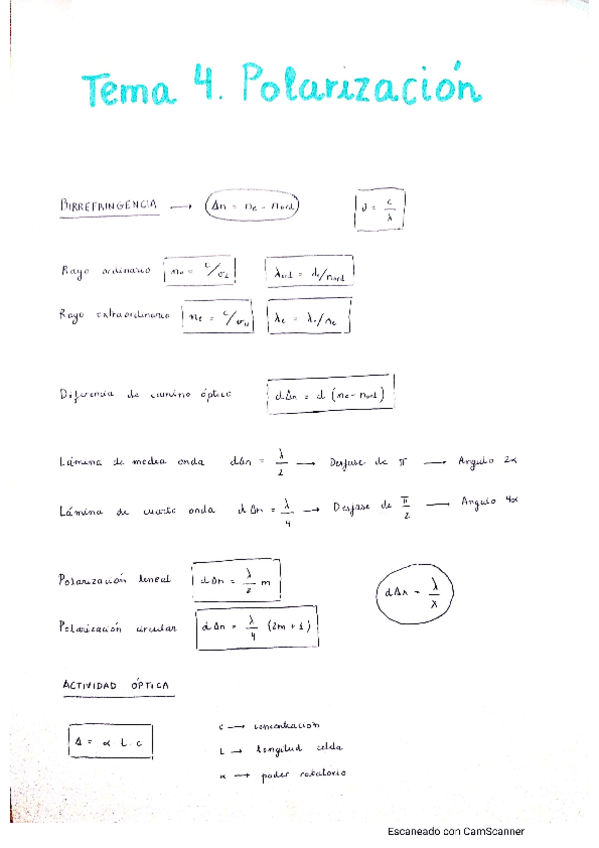 Tema 4. Polarización
BIRREFRINGENCIA → Δn = ne - nord    ν = c/λ
Rayo ordinario no = c/v⊥    λord = λo/nord
Rayo extraordinario ne = c/v∥    λe = λo/ne
Diferencia de camino óptico    dΔn = d (ne - nord)
Lámina de media onda dΔn = λ/2 → Desfase de π → Angulo 2α
Lámina de cuarto onda dΔn = λ/4 → Desfase de π/2 → Angulo 4α
Polarización lineal dΔn = λ/2 m    dΔn = λ/x
Polarización circular dΔn = λ/4 (2m + 1)
ACTIVIDAD ÓPTICA
Δ = α L · c
c → concentración
L → longitud celda
α → poder rotatorio
Escaneado con CamScanner